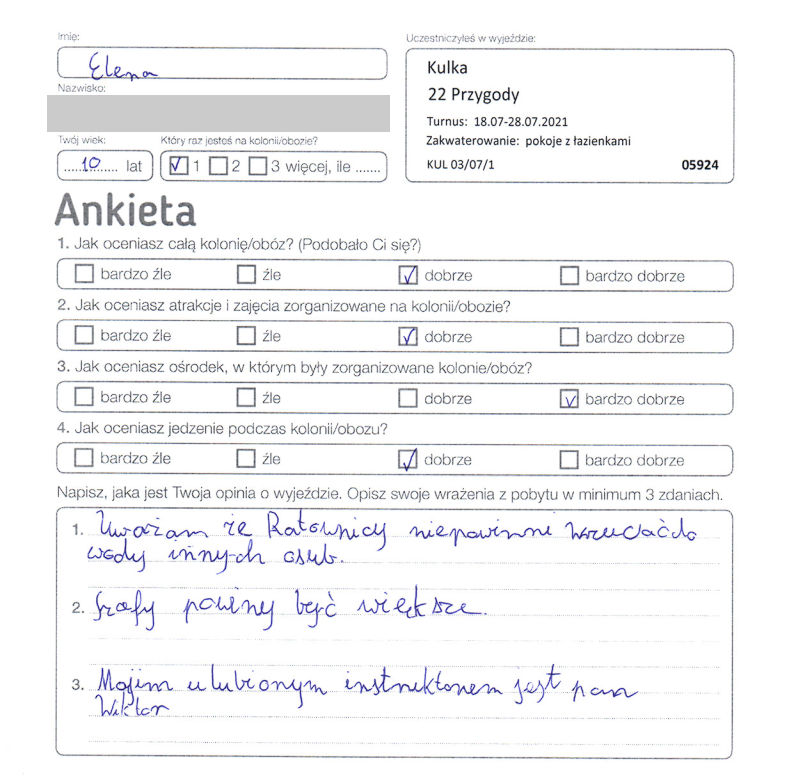 Imię:
Elena
Nazwisko:
Twój wiek:
10 lat
Który raz jesteś na kolonii/obozie?
1 2 3 więcej, ile .......
Uczestniczyłeś w wyjeździe:
Kulka
22 Przygody
Turnus: 18.07-28.07.2021
Zakwaterowanie: pokoje z łazienkami
KUL 03/07/1 05924
Ankieta
1. Jak oceniasz całą kolonię/obóz? (Podobało Ci się?)
bardzo źle źle dobrze bardzo dobrze
2. Jak oceniasz atrakcje i zajęcia zorganizowane na kolonii/obozie?
bardzo źle źle dobrze bardzo dobrze
3. Jak oceniasz ośrodek, w którym były zorganizowane kolonie/obóz?
bardzo źle źle dobrze bardzo dobrze
4. Jak oceniasz jedzenie podczas kolonii/obozu?
bardzo źle źle dobrze bardzo dobrze
Napisz, jaka jest Twoja opinia o wyjeździe. Opisz swoje wrażenia z pobytu w minimum 3 zdaniach.
1. Uważam że Ratownicy niepowinni wrzucać do
wody innych osub.
2. Szafy powiny być większe.
3. Mojim ulubionym instruktorem jest pan
Wiktor